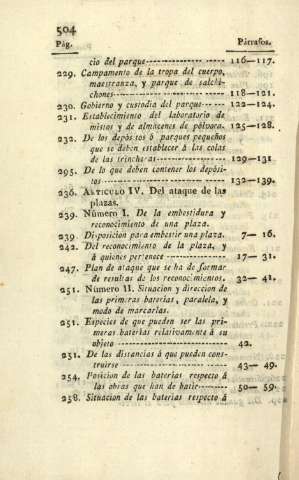 504
Pág. Párrafos.
cio del parque 116—117.
229. Campamento de la tropa del cuerpo,
maestranza, y parque de salchi-
chones 118—121.
230. Gobierno y custodia del parque 122—124.
231. Establecimiento del laboratorio de
mistos y de almacenes de pólvora. 125—128.
232. De los depósitos ó parques pequeños
que se deben establecer á las colas
de las trincheras 129—131
295. De lo que deben contener los depósi-
tos 132—139.
236. ARTICULO IV. Del ataque de las
plazas.
239. Número I. De la embestidura y
reconocimiento de una plaza.
239. Disposicion para embestir una plaza. 7— 16.
242. Del reconocimiento de la plaza, y
á quienes pertenece 17— 31.
247. Plan de ataque que se ha de formar
de resultas de los reconocimientos. 32— 41.
251. Número II. Situacion y direccion de
las primeras baterías, paralela, y
modo de marcarlas.
251. Especies de que pueden ser las pri-
meras baterías relativamente á su
objeto 42.
251. De las distancias á que pueden cons-
truirse 43— 49.
254. Posicion de las baterías respecto á
las obras que han de batir 50— 59.
258. Situacion de las baterías respecto á